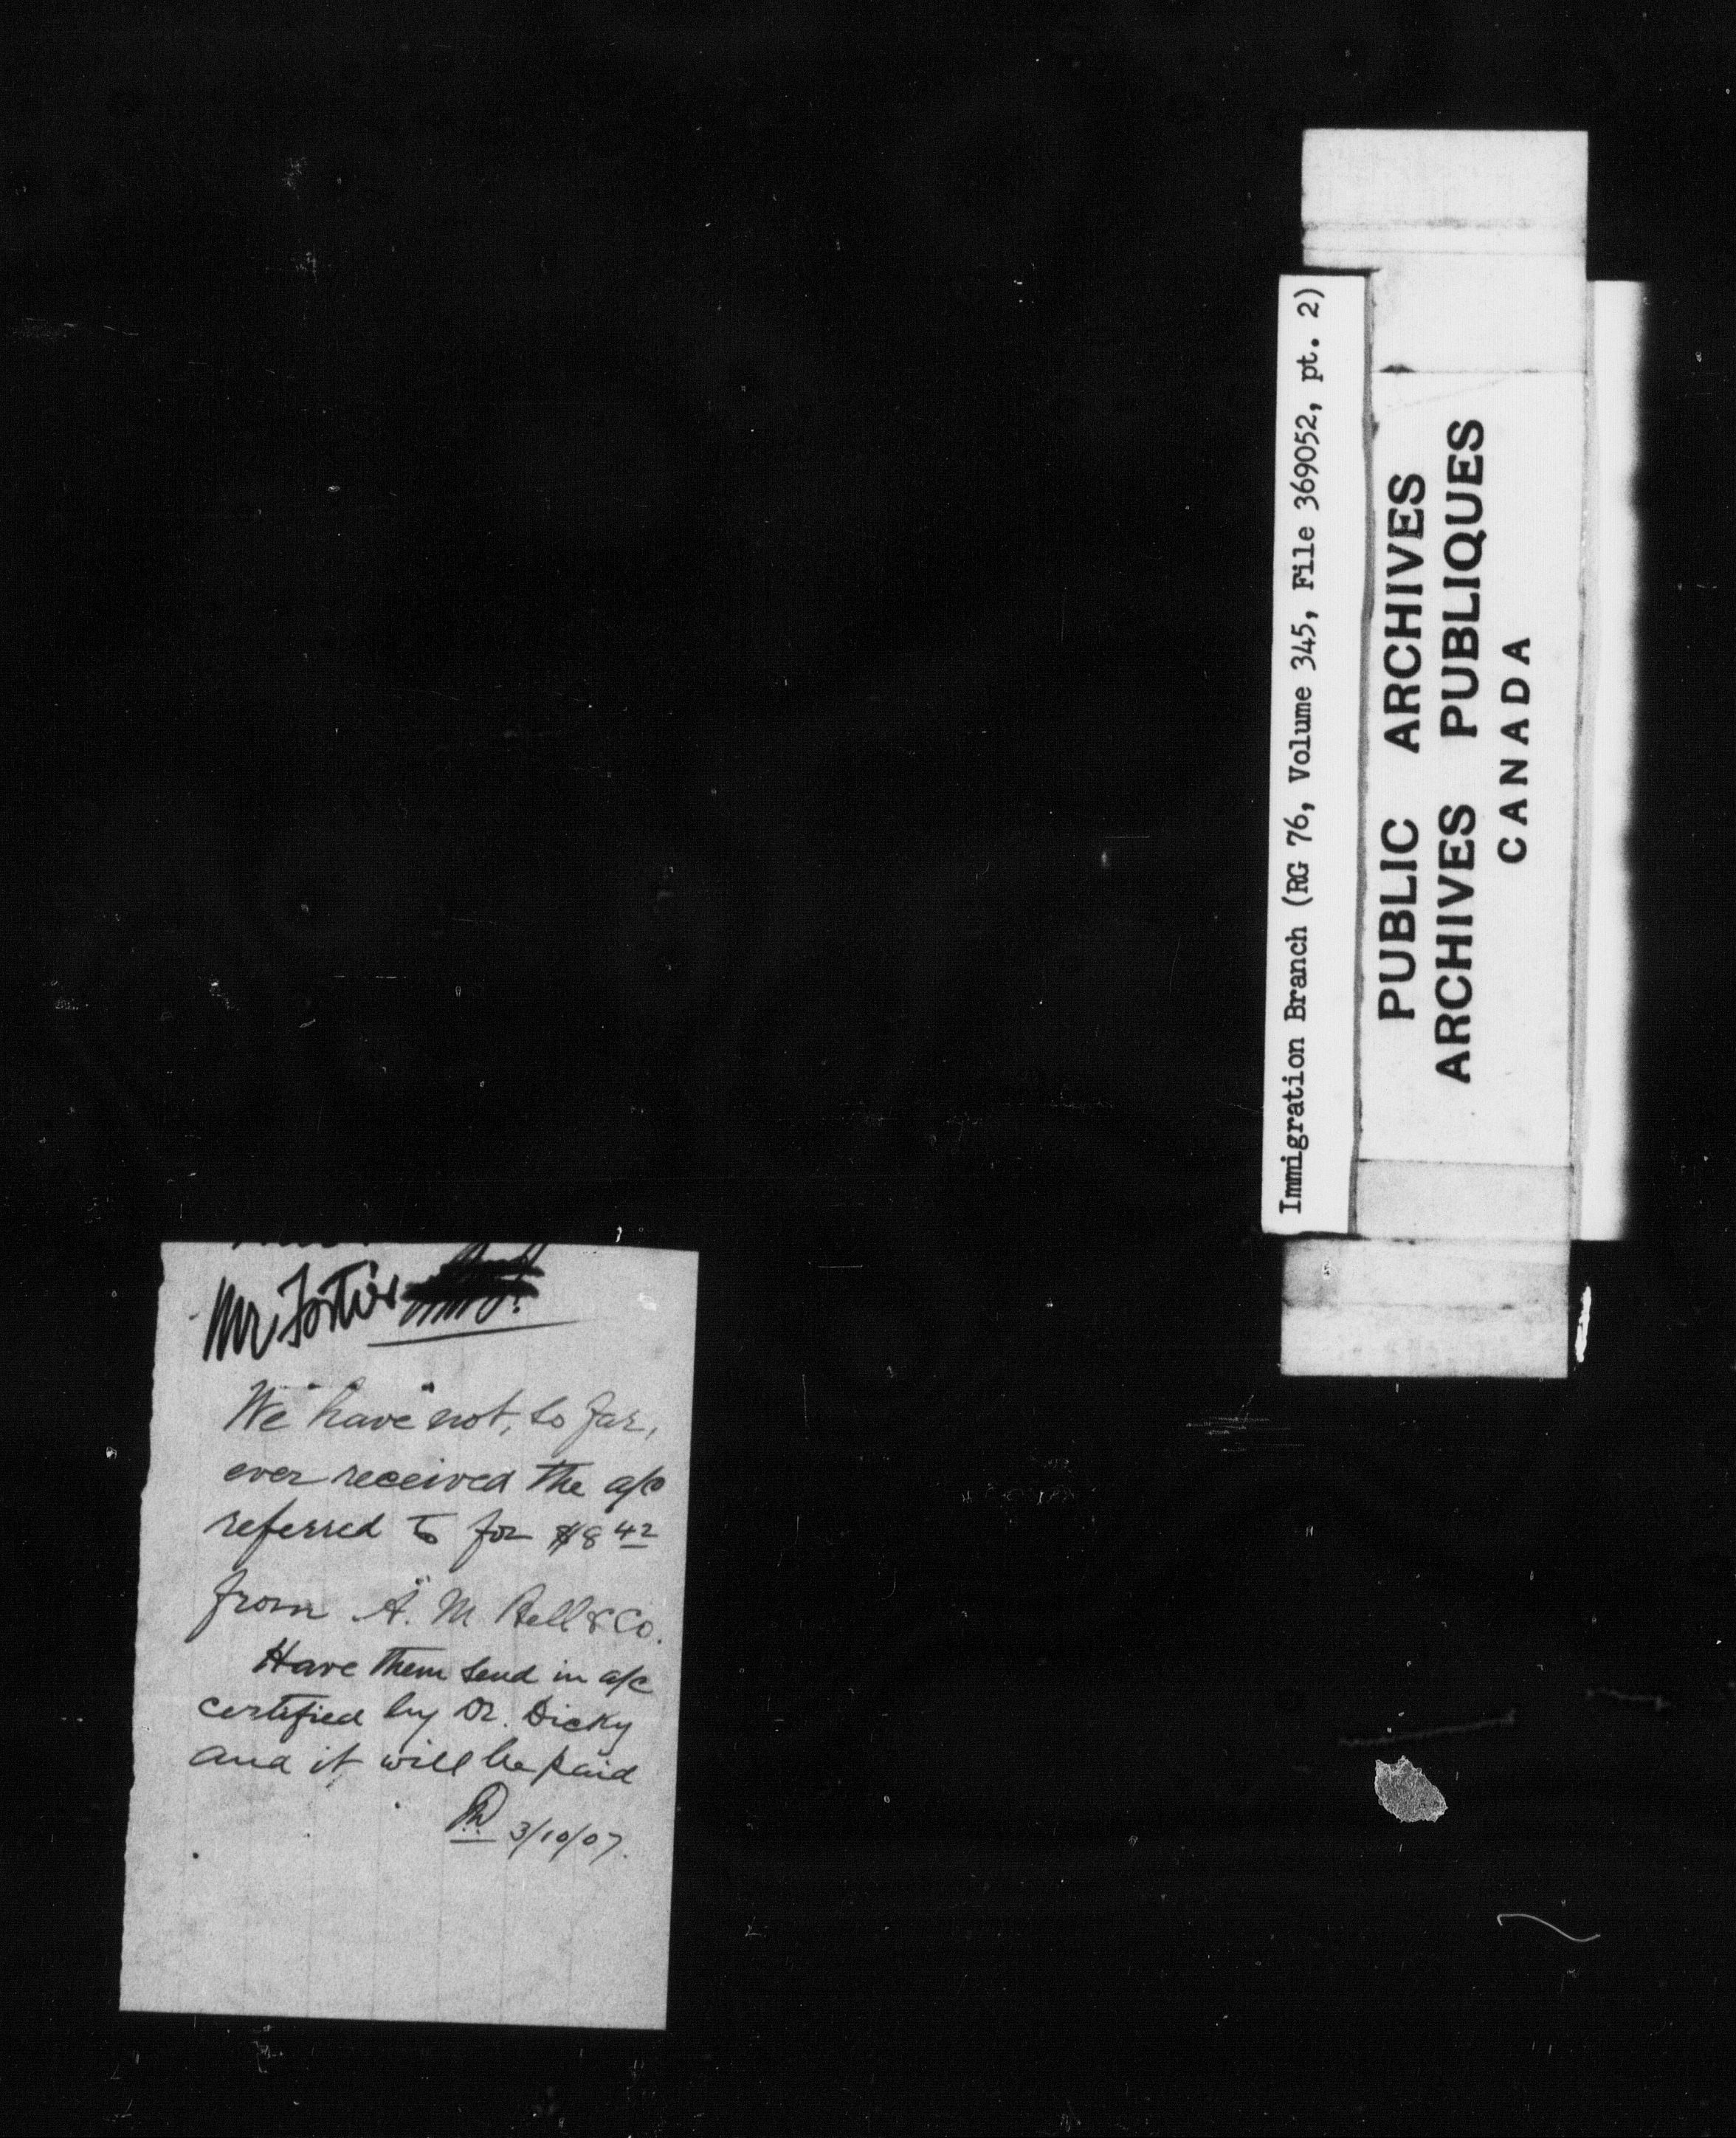 Mr Fortier
We have not, so far,
ever received the a/c
referred to for $8 42
from A. M. Bell & Co.
Have them send in a/c
certified by Dr. Dicky
and it will be paid
3/10/07.
Immigration Branch (RG 76, Volume 345, File 369052, pt. 2)
PUBLIC ARCHIVES
ARCHIVES PUBLIQUES
CANADA